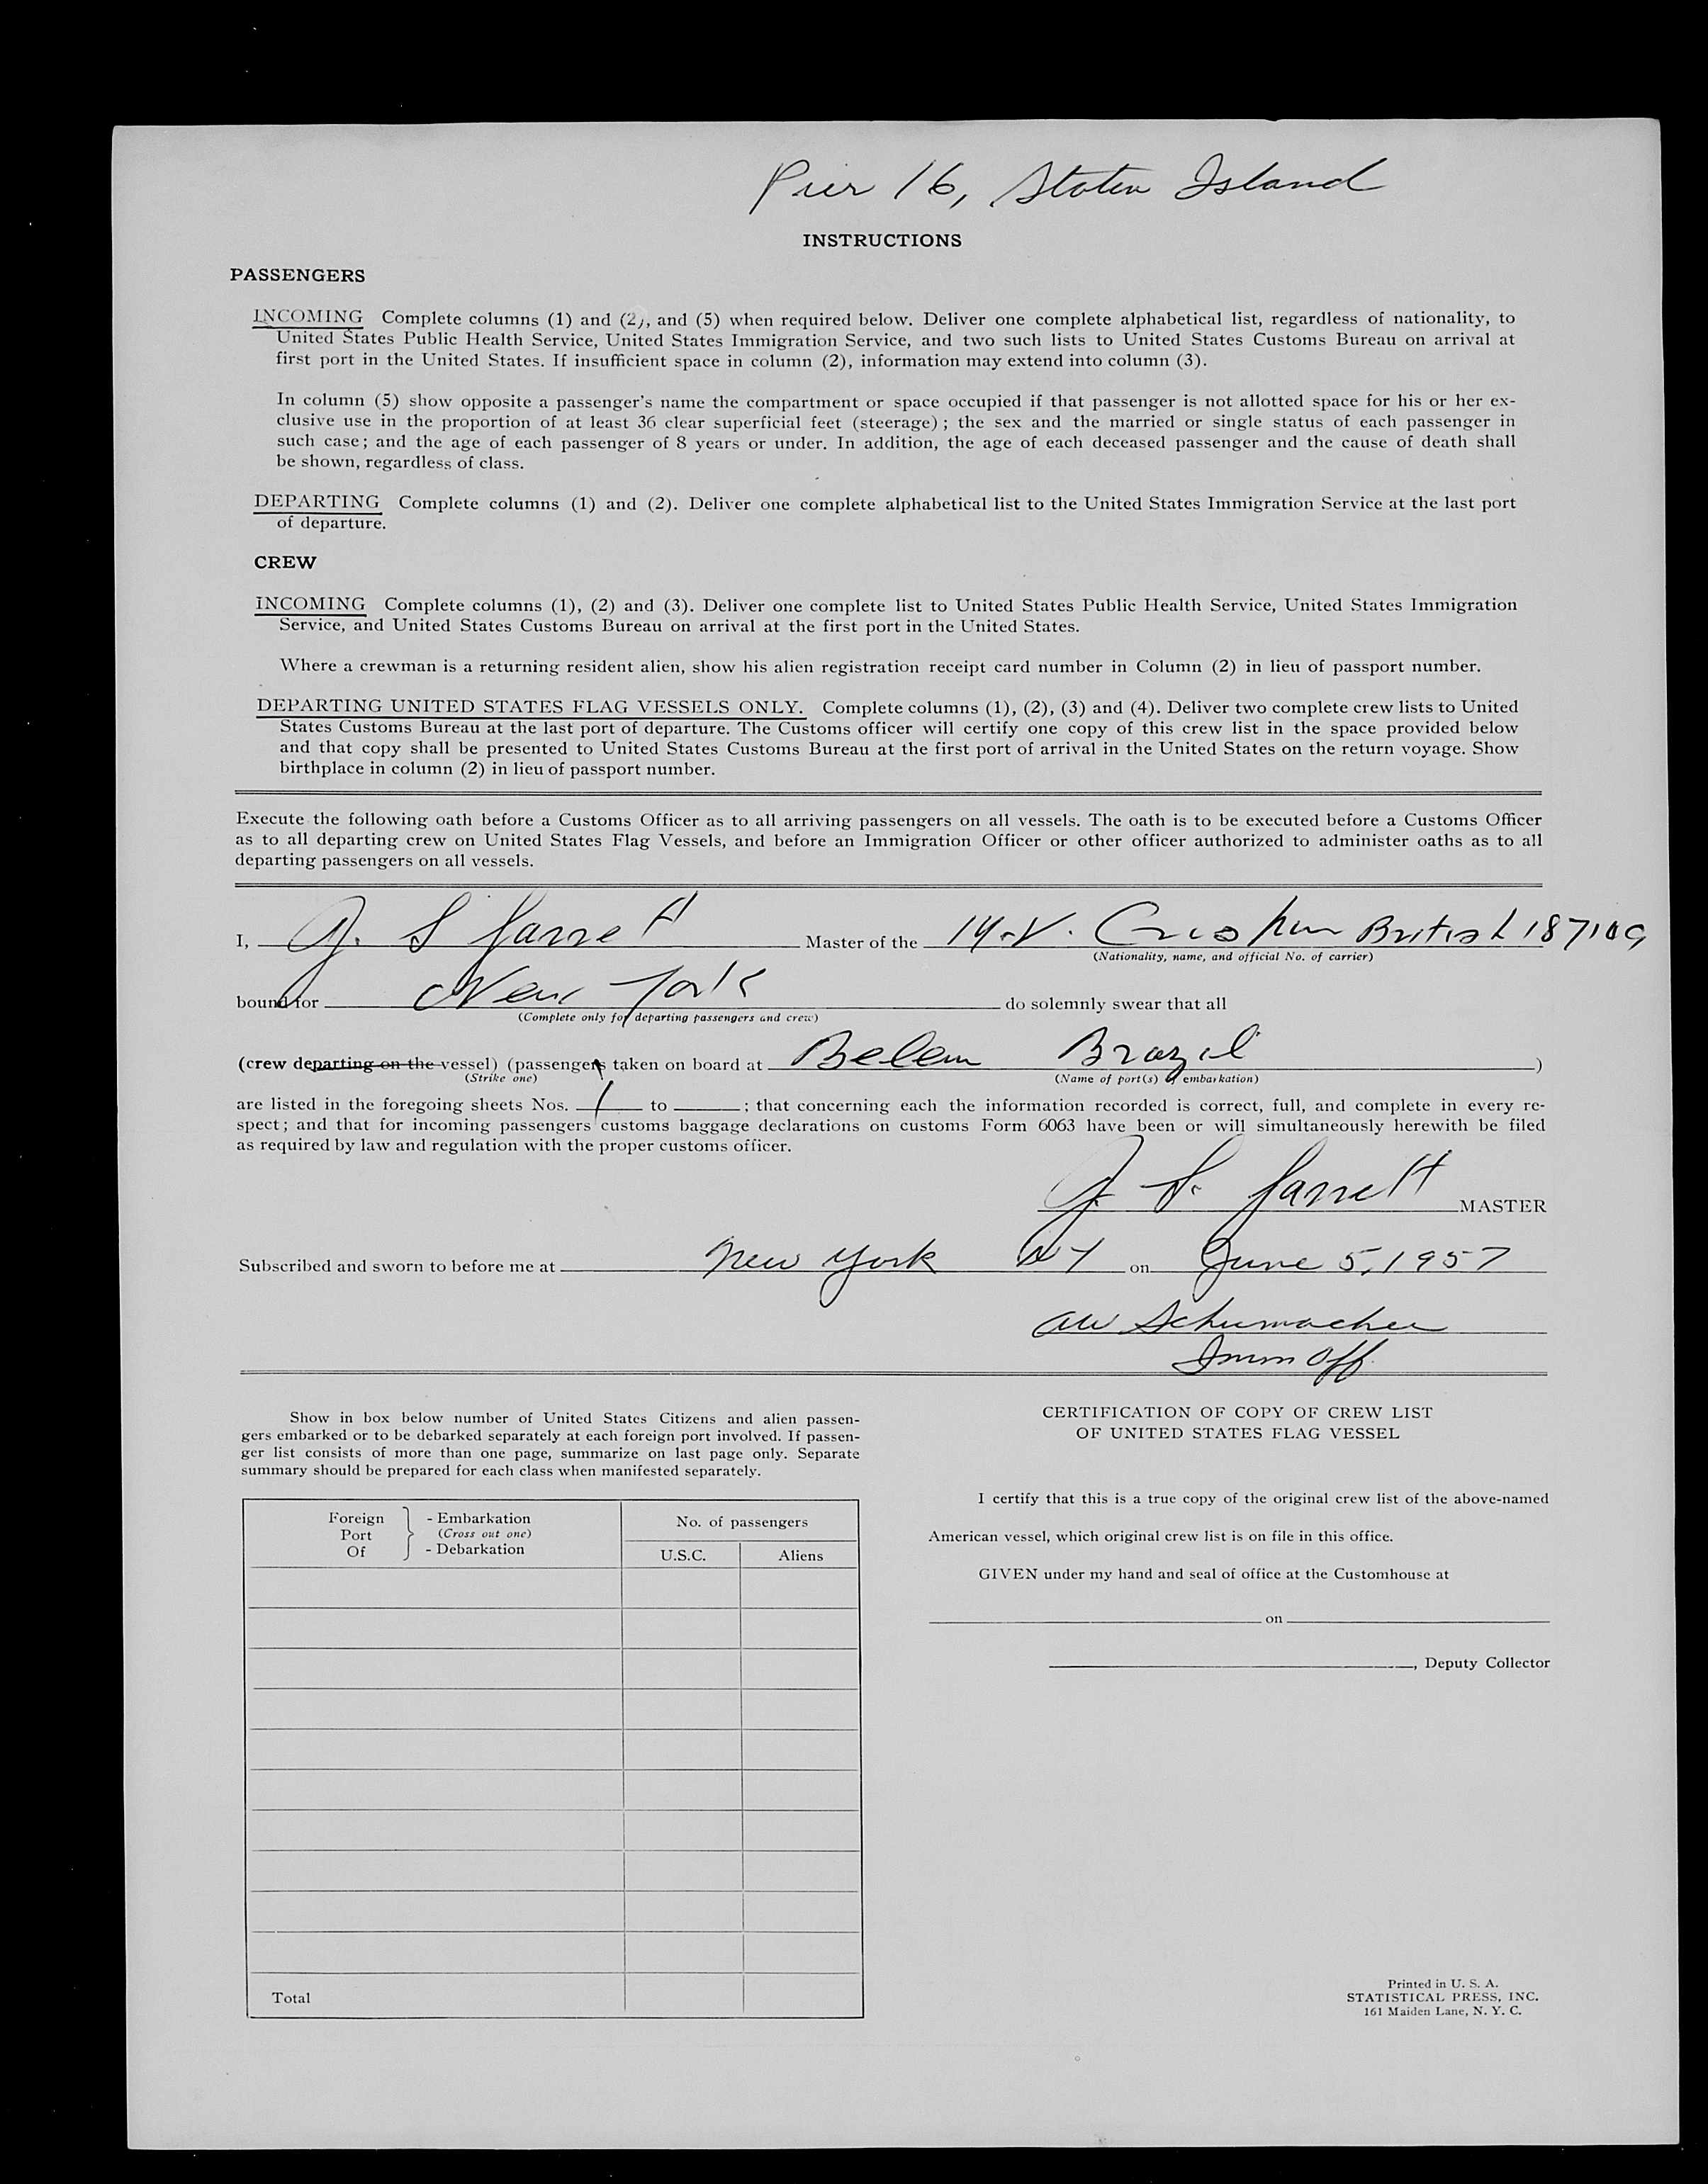 Pier 16, Staten Island
INSTRUCTIONS
PASSENGERS
INCOMING Complete columns (1) and (2), and (5) when required below. Deliver one complete alphabetical list, regardless of nationality, to
United States Public Health Service, United States Immigration Service, and two such lists to United States Customs Bureau on arrival at
first port in the United States. If insufficient space in column (2), information may extend into column (3).
In column (5) show opposite a passenger's name the compartment or space occupied if that passenger is not allotted space for his or her ex-
clusive use in the proportion of at least 36 clear superficial feet (steerage); the sex and the married or single status of each passenger in
such case; and the age of each passenger of 8 years or under. In addition, the age of each deceased passenger and the cause of death shall
be shown, regardless of class.
DEPARTING Complete columns (1) and (2). Deliver one complete alphabetical list to the United States Immigration Service at the last port
of departure.
CREW
INCOMING Complete columns (1), (2) and (3). Deliver one complete list to United States Public Health Service, United States Immigration
Service, and United States Customs Bureau on arrival at the first port in the United States.
Where a crewman is a returning resident alien, show his alien registration receipt card number in Column (2) in lieu of passport number.
DEPARTING UNITED STATES FLAG VESSELS ONLY. Complete columns (1), (2), (3) and (4). Deliver two complete crew lists to United
States Customs Bureau at the last port of departure. The Customs officer will certify one copy of this crew list in the space provided below
and that copy shall be presented to United States Customs Bureau at the first port of arrival in the United States on the return voyage. Show
birthplace in column (2) in lieu of passport number.
Execute the following oath before a Customs Officer as to all arriving passengers on all vessels. The oath is to be executed before a Customs Officer
as to all departing crew on United States Flag Vessels, and before an Immigration Officer or other officer authorized to administer oaths as to all
departing passengers on all vessels.
I, J. S Jarrett Master of the M.V. British 187109
(Nationality, name, and official No. of carrier)
bound for New York do solemnly swear that all
(Complete only for departing passengers and crew)
(crew departing on the vessel) (passengers taken on board at Belem Brazil )
(Strike one) (Name of port(s) of embarkation)
are listed in the foregoing sheets Nos. 1 to ; that concerning each the information recorded is correct, full, and complete in every re-
spect; and that for incoming passengers customs baggage declarations on customs Form 6063 have been or will simultaneously herewith be filed
as required by law and regulation with the proper customs officer.
J. S. Jarrett MASTER
Subscribed and sworn to before me at New York NY on June 5, 1957
AW Schumacher
Imm Off.
Show in box below number of United States Citizens and alien passen-
gers embarked or to be debarked separately at each foreign port involved. If passen-
ger list consists of more than one page, summarize on last page only. Separate
summary should be prepared for each class when manifested separately.
Foreign Port Of - Embarkation (Cross out one) - Debarkation
No. of passengers
U.S.C. Aliens
Total
CERTIFICATION OF COPY OF CREW LIST
OF UNITED STATES FLAG VESSEL
I certify that this is a true copy of the original crew list of the above-named
American vessel, which original crew list is on file in this office.
GIVEN under my hand and seal of office at the Customhouse at
on
, Deputy Collector
Printed in U. S. A.
STATISTICAL PRESS, INC.
161 Maiden Lane, N. Y. C.